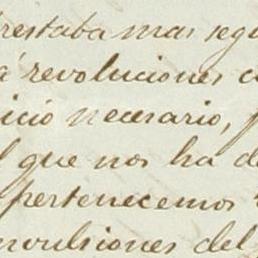 restaba mas segu
á revoluciones c
icio necesario, p
l que nos ha d
pertenecemos
nvulsiones del